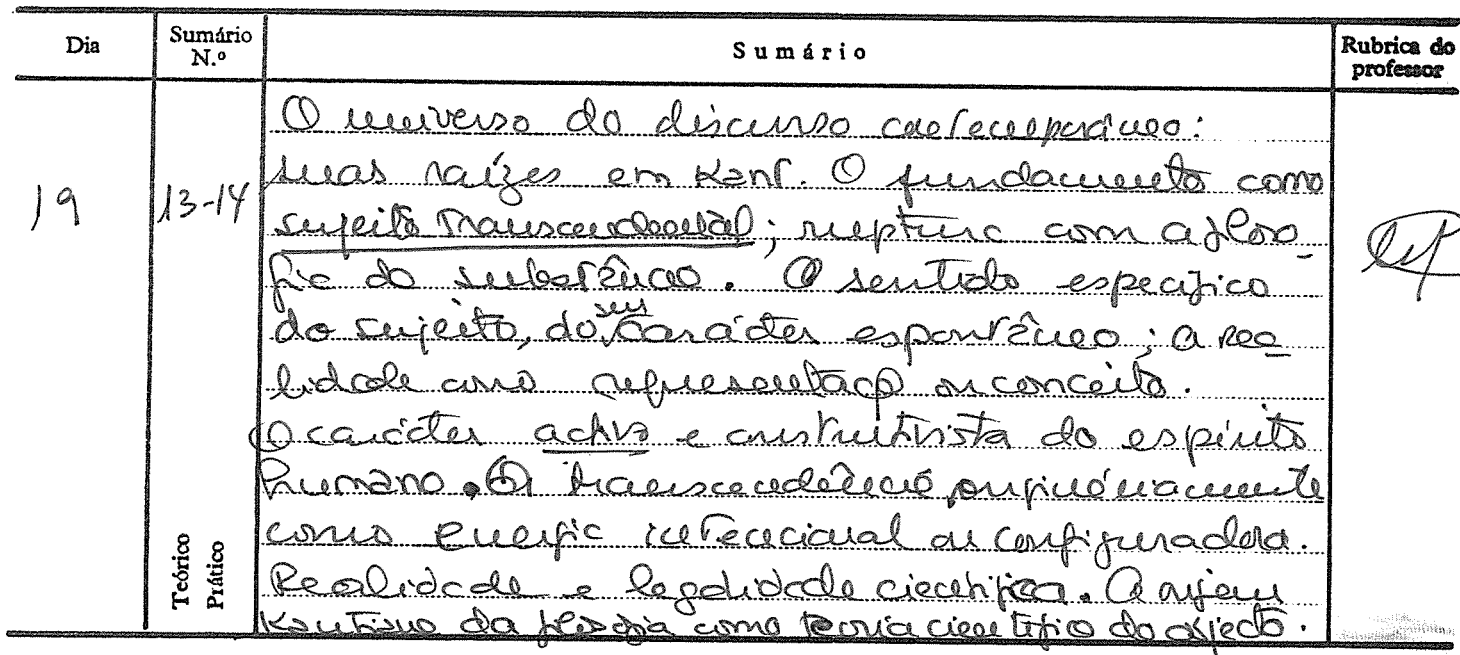 Dia Sumário N.º Sumário Rubrica do professor
O universo do discurso contemporâneo:
suas raízes em Kant. O fundamento como
19 13-14 sujeito transcendental; ruptura com a filoso-
fia da substância. O sentido específico
do sujeito, do seu carácter espontâneo; a rea
lidade como representação ou conceito.
O carácter activo e construtivista do espírito
humano. A transcendência originariamente
como energia intencional ou configuradora.
Realidade e legalidade científica. A origem
kantiana da filosofia como teoria científica do objecto.
Teórico
Prático